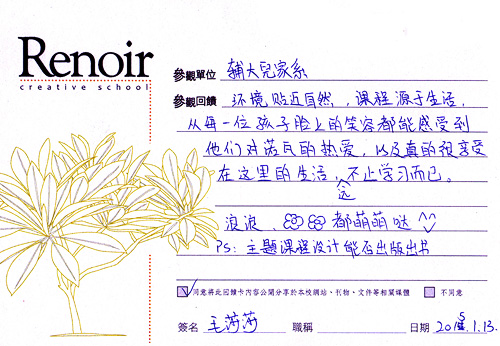 Renoir
creative school
參觀單位 輔大兒家系
參觀回饋 环境贴近自然，课程源于生活，
从每一位孩子脸上的笑容都能感受到
他们对诺瓦的热爱，以及真的很享受
在这里的生活，远不止学习而已。
浪浪、都萌萌哒^^
Ps: 主题课程设计能否出版出书
同意將此回饋卡內容公開分享於本校網站、刊物、文件等相關媒體 不同意
簽名 毛莎莎 職稱 日期 2015.1.13.